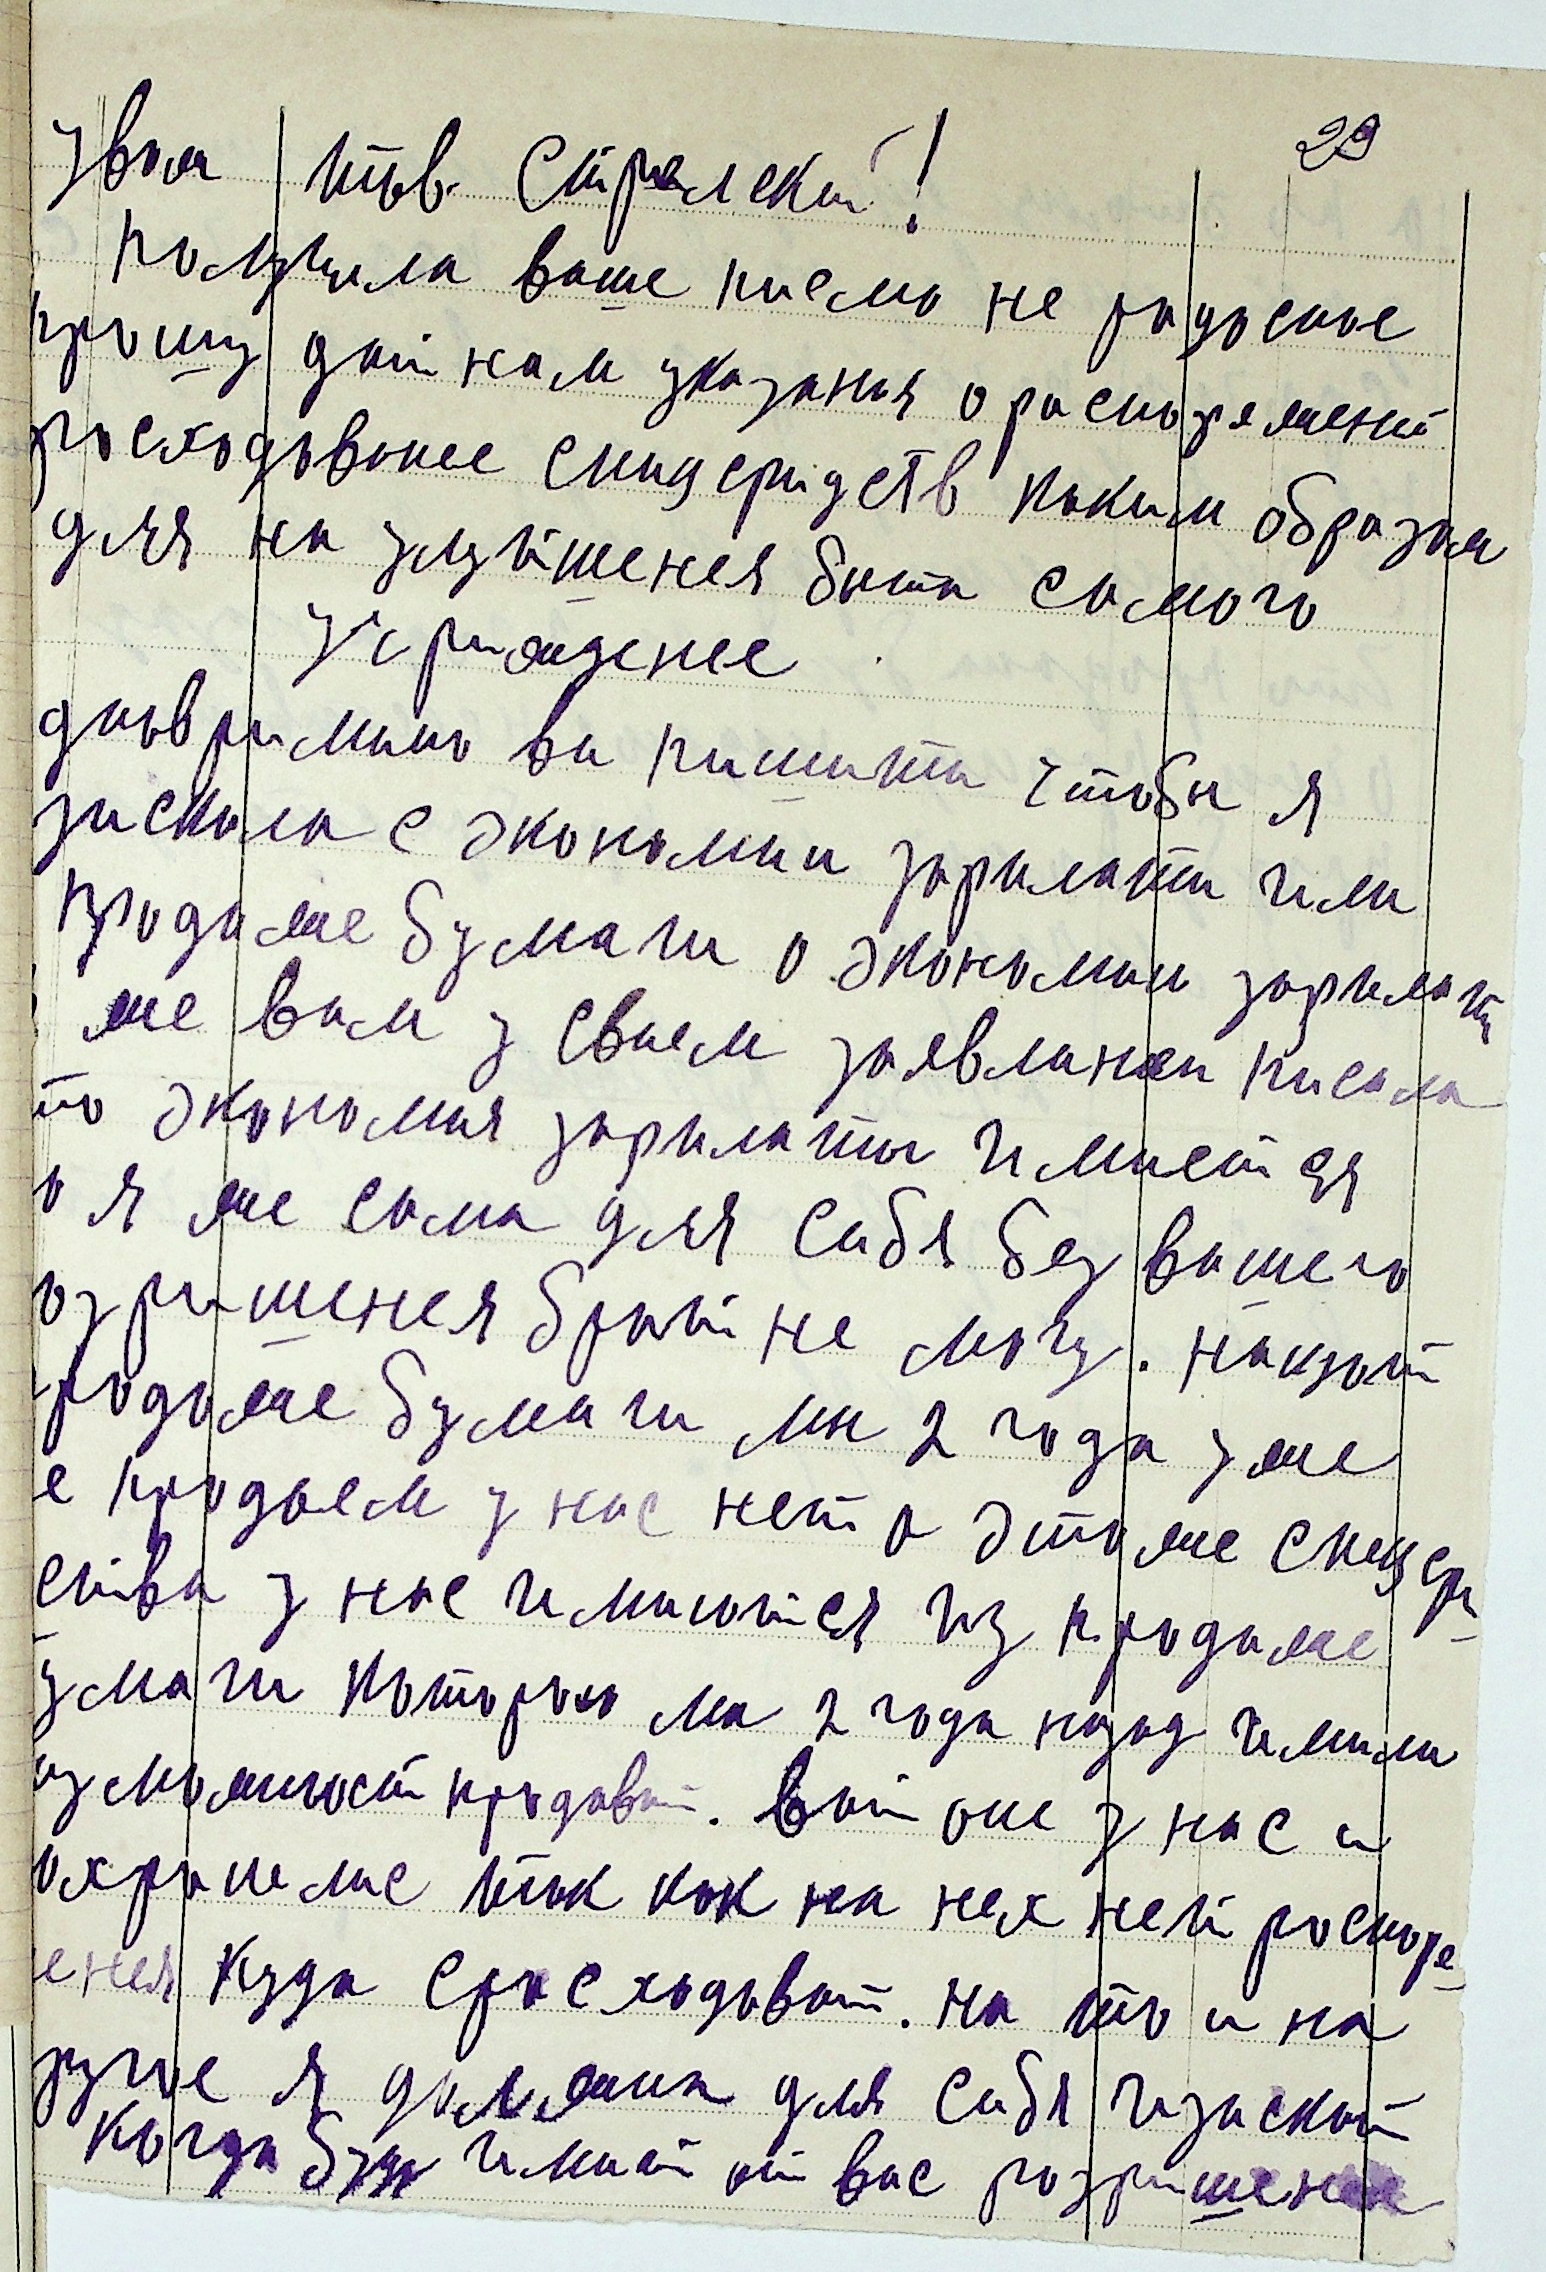 29
Увом тов. Стрелский!
Получила ваше писмо не радосное
прошу дат нам указаня о распоряжени
росходованее спицсридств каким образам
для на улутшенея быта самого
Учриждение
дновримино ви пишити чтоби я
зискала с экономии зарплати или
продаже бумаги о экономии зарплати
же вам у своем заявлинеи писала
то экономия зарплаты имиетця
о я же сама для сибя без вашего
озришенея брат не могу. накзат
родаже бумаги мы 2 года уже
е продаем у нас нет а этоже спицср
ства у нас имиютися из продаже
умаги которою ми 2 года назад имили
озможност продават. Вот оне у нас и
охранелис так как на них нет роспоре
енея куда срасходоват. на то и на
ругое я должна для сибя изыскат
когда буду имит от вас розришение